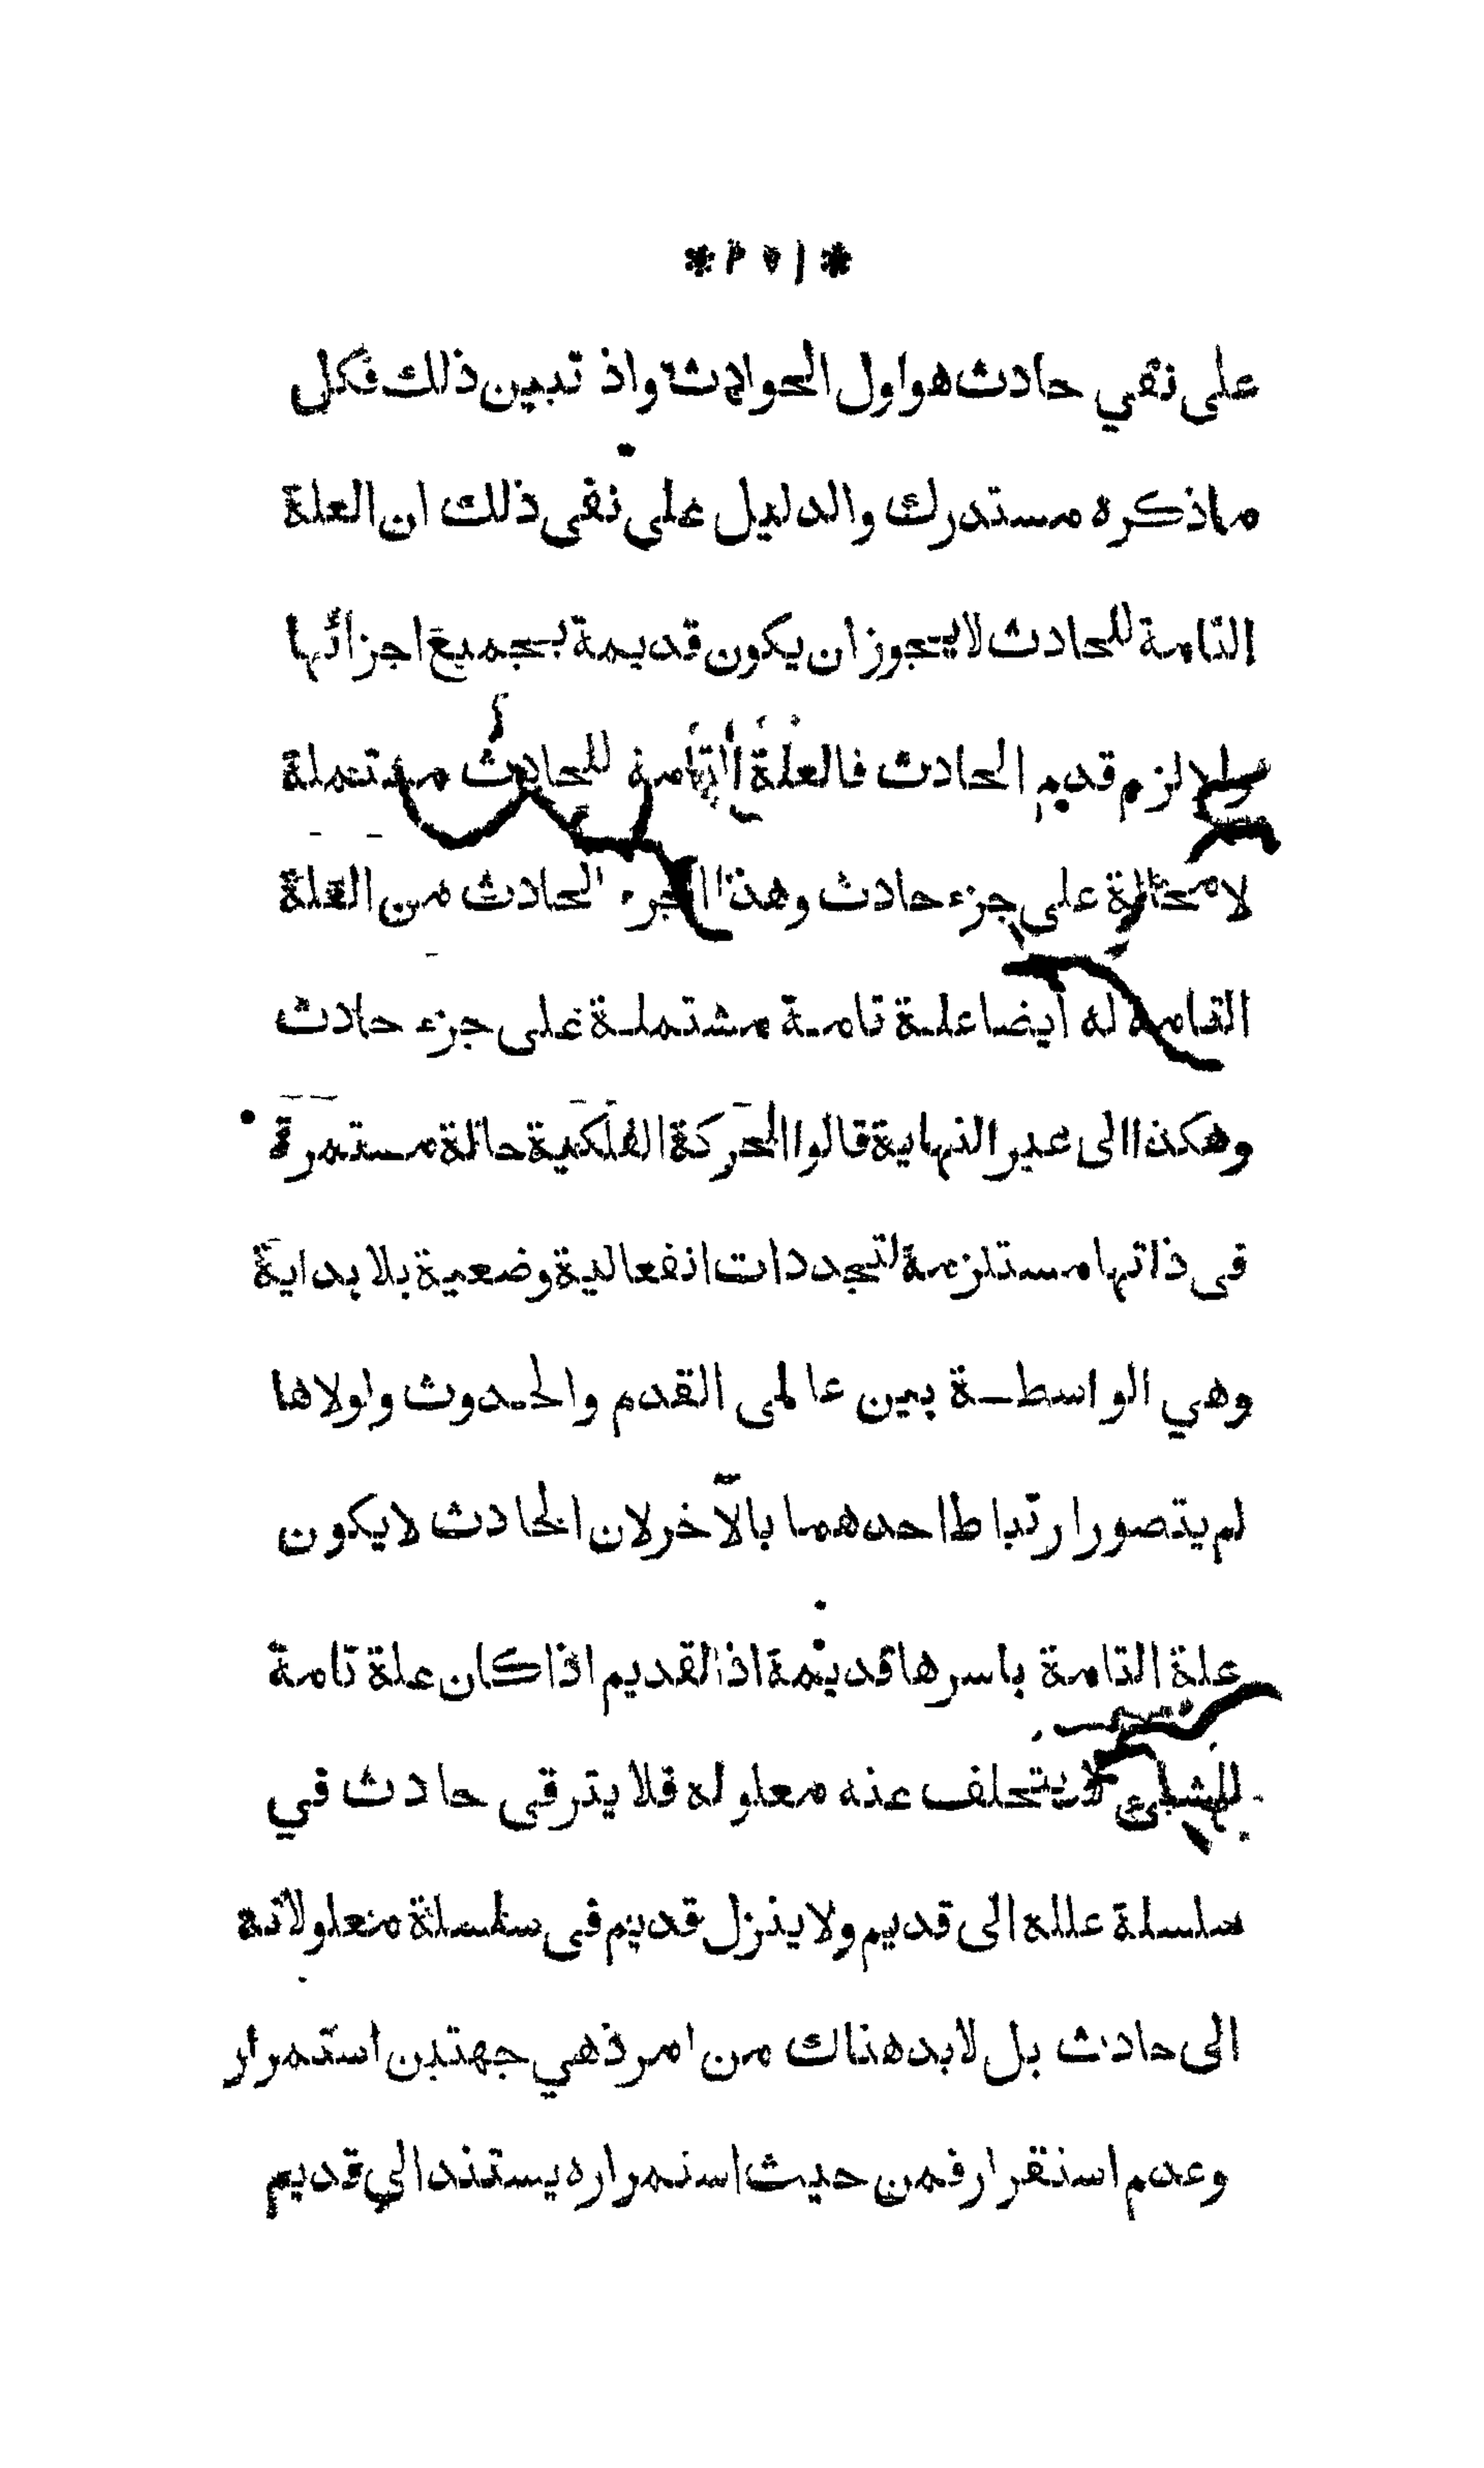 على نفي حادث هو اول الحوادث واذ تبين ذلك فكل
ماذكره مستدرك والدليل على نفى ذلك ان العلة
التامة للحادث لايجوز ان يكون قديمة بجميع اجزائها
والا لزم قدم الحادث فالعلة التامة للحادث مشتملة
لا محالة على جزء حادث وهذا الجزء الحادث من العلة
التامة له ايضا علة تامة مشتملة على جزء حادث
وهكذا الى غير النهاية قالوا الحركة الفلكية حالة مستمرة
فى ذاتها مستلزمة لتجددات انفعالية وضعية بلا بداية
وهي الواسطة بين عالمى القدم والحدوث ولولاها
لم يتصور ارتباط احدهما بالآخر لان الحادث لايكون
علة التامة باسرها قديمة اذ القديم اذا كان علة تامة
للشئ لا يتخلف عنه معلوله فلا يترقى حادث في
سلسلة علله الى قديم ولا ينزل قديم فى سلسلة معلولاته
الى حادث بل لابد هناك من امر ذهي جهتين استمرار
وعدم استقرار فمن حيث استمراره يستند الي قديم